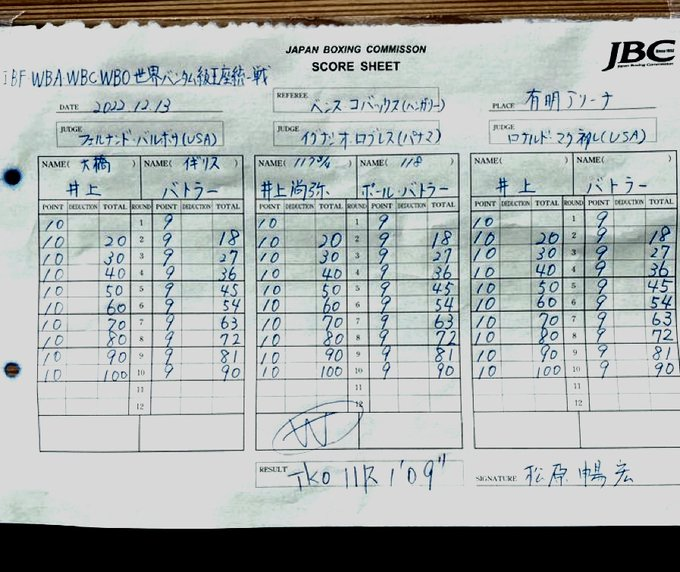 JAPAN BOXING COMMISSON
SCORE SHEET
JBC Since 1952
Japan Boxing Commission
IBF WBA WBC WBO 世界バンタム級王座統一戦
DATE 2022.12.13
REFEREE ベンス コバックス(ハンガリー)
PLACE 有明アリーナ
JUDGE フェルナンド・バルボサ(USA)
JUDGE イグナシオ・ロブレス(パナマ)
JUDGE ロナルド・マクネア(USA)
NAME( 大橋 ) NAME( イギリス ) NAME( 117 3/4 ) NAME( 118 ) NAME( ) NAME( )
井上 バトラー 井上尚弥 ポール・バトラー 井上 バトラー
POINT DEDUCTION TOTAL ROUND POINT DEDUCTION TOTAL POINT DEDUCTION TOTAL ROUND POINT DEDUCTION TOTAL POINT DEDUCTION TOTAL ROUND POINT DEDUCTION TOTAL
10 1 9 10 1 9 10 1 9
10 20 2 9 18 10 20 2 9 18 10 20 2 9 18
10 30 3 9 27 10 30 3 9 27 10 30 3 9 27
10 40 4 9 36 10 40 4 9 36 10 40 4 9 36
10 50 5 9 45 10 50 5 9 45 10 50 5 9 45
10 60 6 9 54 10 60 6 9 54 10 60 6 9 54
10 70 7 9 63 10 70 7 9 63 10 70 7 9 63
10 80 8 9 72 10 80 8 9 72 10 80 8 9 72
10 90 9 9 81 10 90 9 9 81 10 90 9 9 81
10 100 10 9 90 10 100 10 9 90 10 100 10 9 90
11 11 11
12 12 12
W
RESULT TKO 11R 1'09"
SIGNATURE 松原 暢宏